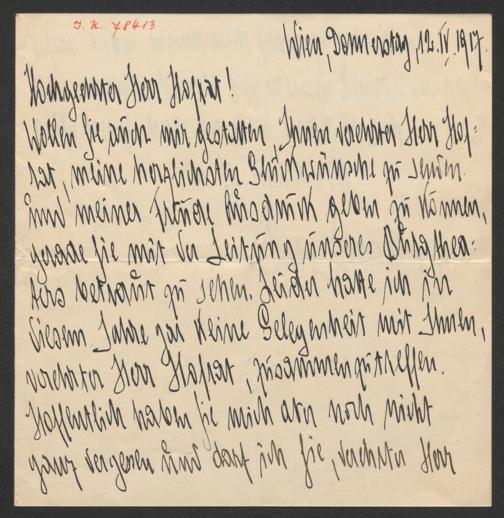 I. N. 78413
Wien, Donnerstag, 12. IV. 1917.
Hochgeehrter Herr Hofrat!
Wollen Sie auch mir gestatten, Ihnen verehrter Herr Hof-
rat, meine herzlichsten Glückwünsche zu senden
und meiner Freude Ausdruck geben zu können,
gerade Sie mit der Leitung unseres Burgthea-
ters betraut zu sehen. Leider hatte ich in
diesem Jahre gar keine Gelegenheit mit Ihnen,
verehrter Herr Hofrat, zusammenzutreffen.
Hoffentlich haben Sie mich aber noch nicht
ganz vergessen und darf ich Sie, verehrter Herr